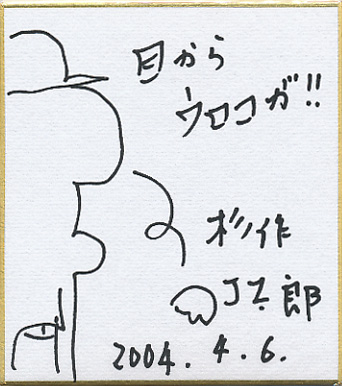 目から
ウロコが!!
杉作
J太郎
2004.4.6.